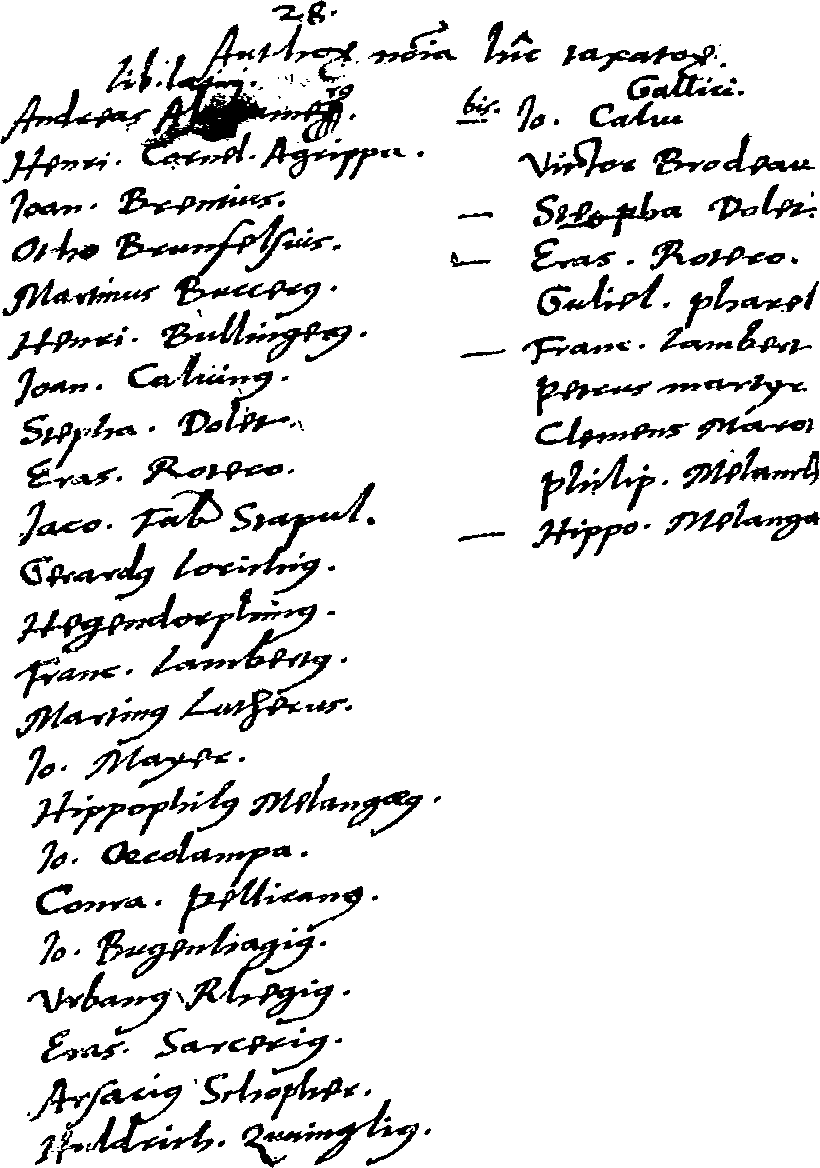 28.
Authoꝝ nōīa hūc taxatoꝝ.
lib. latini.
Andreas
Henri. Cornel. Agrippa.
Ioan. Brentius.
Otho Brunfelsius.
Martinus Bucerꝰ.
Henri. Bullingerꝰ.
Ioan. Caluinꝰ.
Stepha. Dolet.
Eras. Rotero.
Iaco. Fab Stapul.
Gerardꝰ Lorichiꝰ.
Hegendorphinꝰ.
Franc. Lambertꝰ.
Martinꝰ Lutherus.
Io. Mayer.
Hippophilꝰ Melangæꝰ.
Io. Oecolampa.
Conra. Pellicanꝰ.
Io. Bugenhagiꝰ.
Vrbanꝰ Rhegiꝰ.
Eras. Sarceriꝰ.
Arsaciꝰ Schopher.
Huldrich. Zuuingliꝰ.
Gallici.
bis. Io. Calui
Victor Brodeau
— Stepha Dolet.
— Eras. Rotero.
Guliel. pharel
— Franc. Lambert
Petrus martyr
Clemens Marot
Philip. Melanch
— Hippo. Melanga